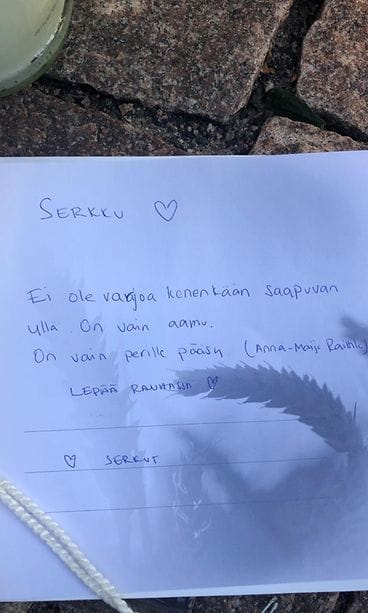 SERKKU ♡
Ei ole varjoa kenenkään saapuvan
yllä. On vain aamu.
On vain perille pääsy (Anna-Maija Raittila)
LEPÄÄ RAUHASSA ♡
♡ SERKUT